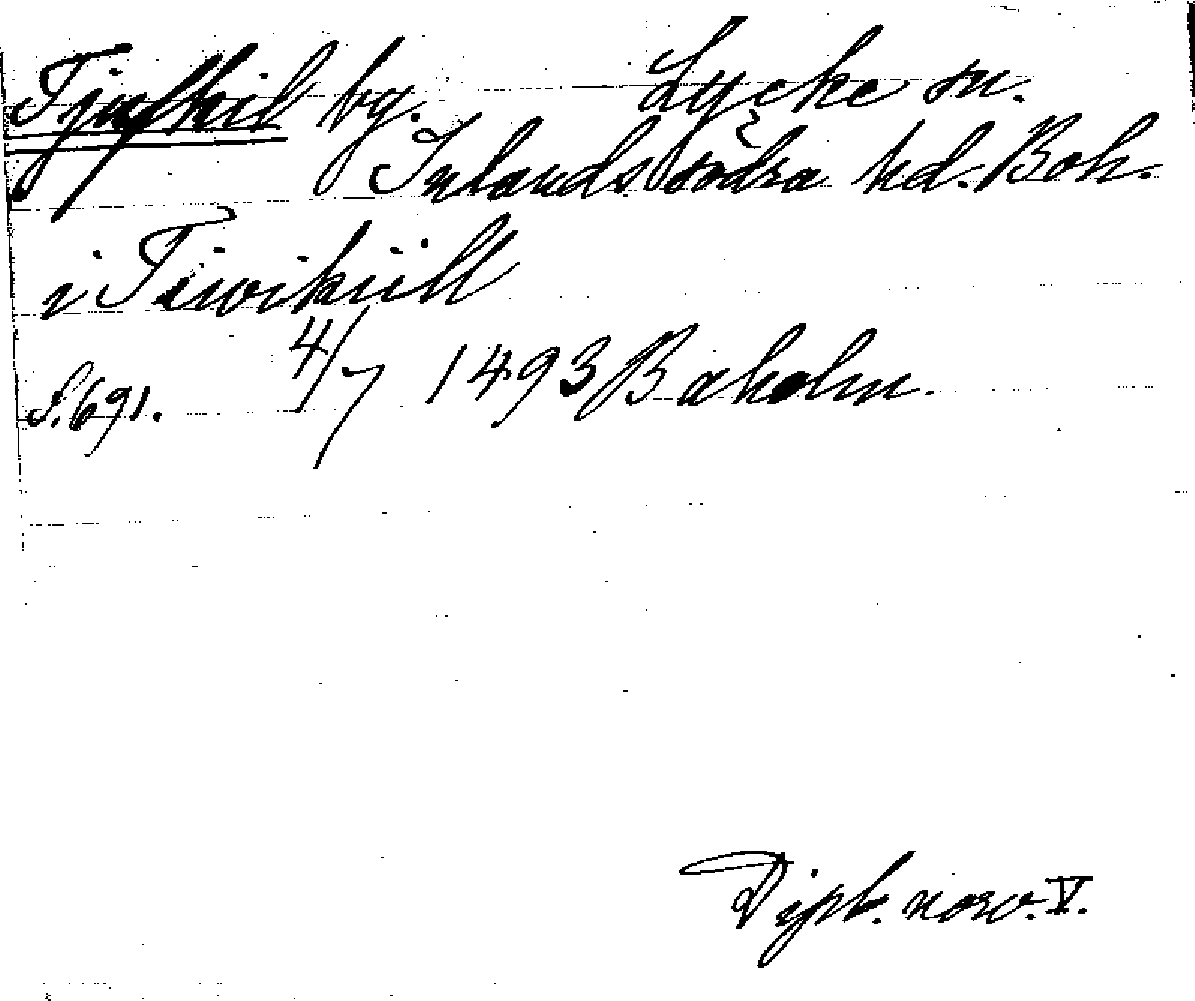 Tjufkil by. Lycke sn.
Inlands södra hd. Boh.
i Tiwikiill
S. 691. 4/7 1493 Baholm.
Dipl. norv. V.